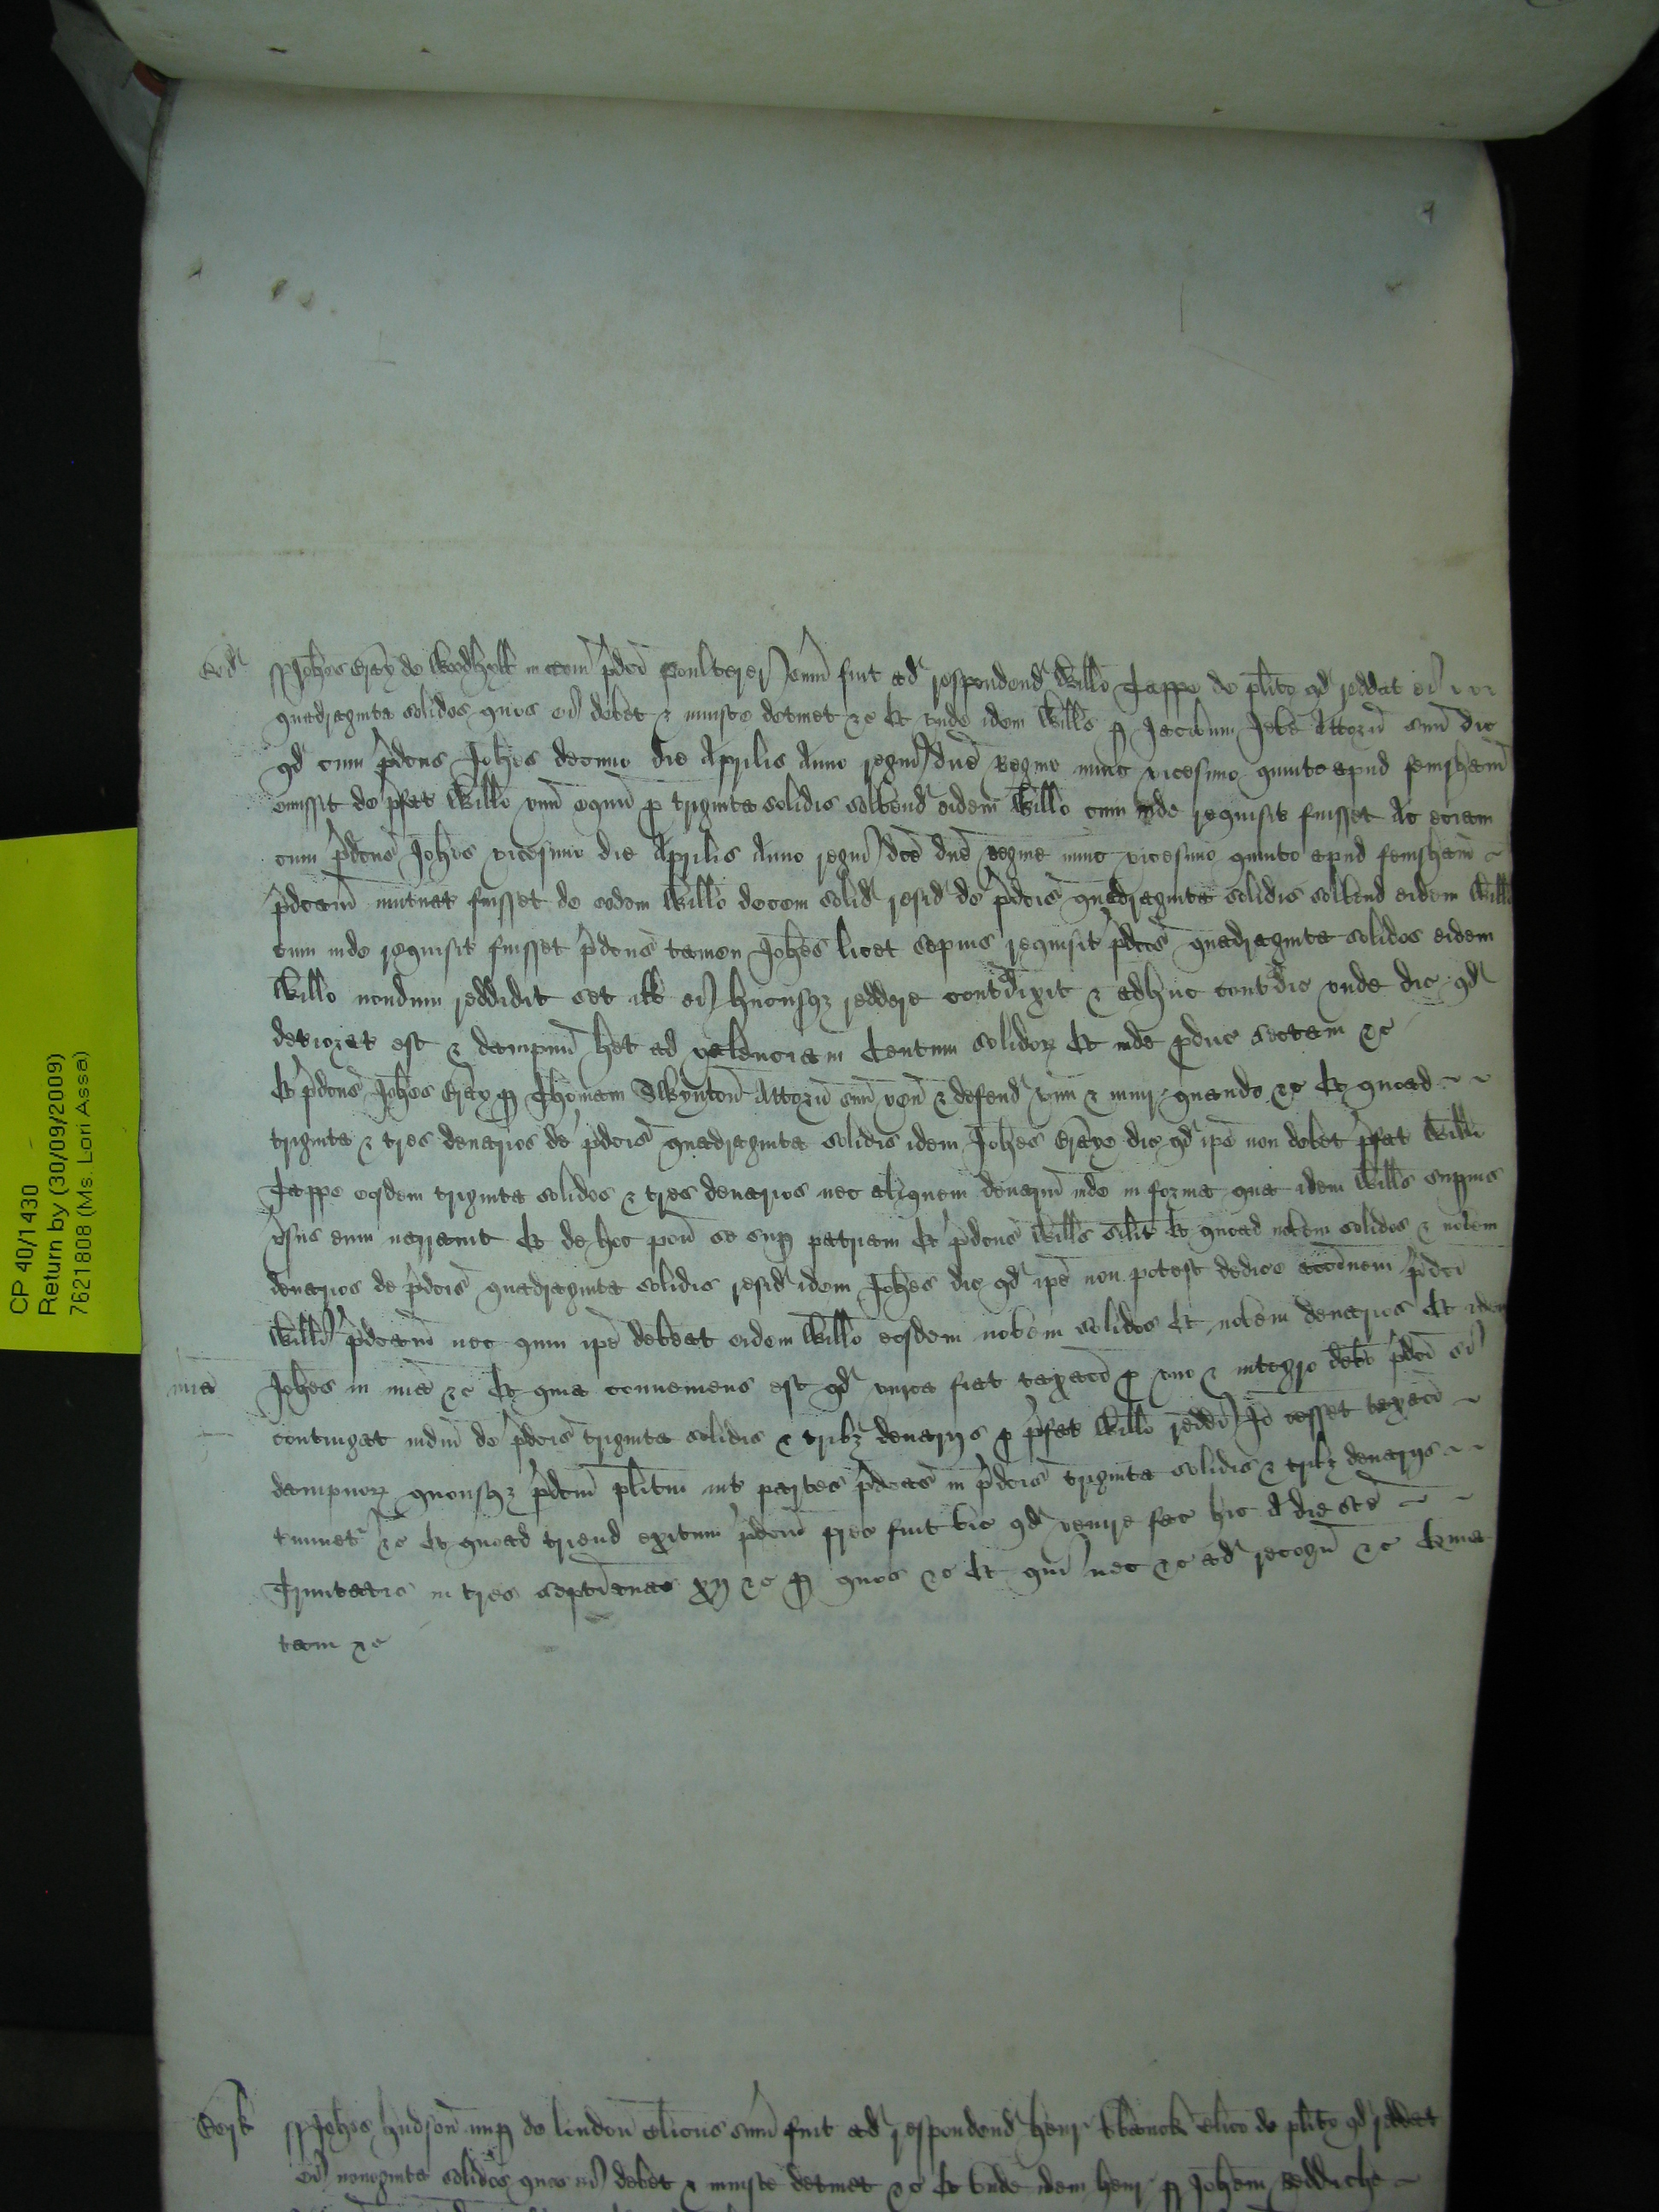 CP 40/1430
Return by (30/09/2009)
7621808 (Ms. Lori Assa)
Johes Gray de Woodhyll in com pdco poulterer sum fuit ad respondend Willo Tappe de plito qd reddat ei
quadraginta solidos quos ei debet & iniuste detinet &c Et unde idem Wills p Jacobum attorn suu dic
qd cum pdcus Johes decimo die Aprilis Anno regni dne Regine nunc vicesimo quinto apud
emisset de pfat Willo unu equu p triginta solidis solvend eidem Willo cum inde requisit fuisset Ac eciam
cum pdcus Johes vicesimo die Aprilis Anno regni dce dne Regine nunc vicesimo quinto apud
pdcam mutuat fuisset de eodem Willo decem solid resid de pdcis quadraginta solidis solvend eidem Willo
cum inde requisit fuisset pdcus tamen Johes licet sepius requisit pdcos quadraginta solidos eidem
Willo nondum reddidit set ill ei hucusqz reddere contdixit & adhuc contdic unde dic qd
deteriorat est & dampnu het ad valenciam Centum solidoz Et inde pduc sectam &c
Et pdcus Johes Gray p Thomam attorn suu ven & defend vim & iniur quando &c Et quoad
triginta & tres denarios de pdcis quadraginta solidis idem Johes Graye dic qd ipe non debet pfat Willo
Tappe eosdem triginta solidos & tres denarios nec aliquem denariu inde in forma qua idem Wills supius
vsus eum narravit Et de hoc pon se sup patriam Et pdcus Wills silit Et quoad novem solidos & novem
denarios de pdcis quadraginta solidis resid idem Johes dic qd ipe non potest dedice accionem pdci
Willi pdcam nec quin ipe debeat eidem Willo eosdem novem solidos Et novem denarios Et idem
mia Johes in mia &c Et quia conveniens est qd unica fiat taxacio p uno & integro debo pdco si
contingat iudiciu de pdcis triginta solidis & tribz denarijs p pfat Willo reddi Io cesset taxaco
dampnoz quousqz pdcm plitum int partes pdcas in pdcis triginta solidis & tribz denarijs
tminet &c Et quoad triend exitum pdcum prec fuit vic qd venire fac hic a die sce
Trinitatis in tres septimanas xij &c p quos &c Et qui nec &c ad recogn &c Quia
tam &c
Johes hudson nup de london clicus sum fuit ad respondend henr clico de plito qd reddat
ei nonaginta solidos quos ei debet & iniuste detinet &c Et unde idem henr p Johem Reddiche